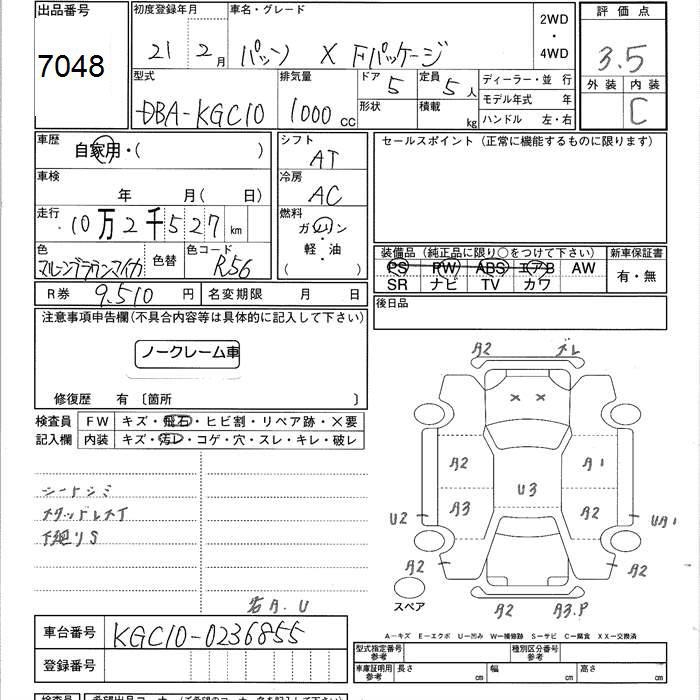 出品番号
7048
初度登録年月
21 2月
車名・グレード
パッソ X Fパッケージ
2WD
・
4WD
評価点
3.5
外装 内装
C
型式
DBA-KGC10
排気量
1000 cc
ドア
5
形状
定員
5人
積載
kg
ディーラー・並 行
モデル年式 年
ハンドル 左・右
車歴
自家用・( )
車検
年 月( 日)
走行
10万2千527 km
色
マルーンブラウンマイカ
色替
色コード
R56
シフト
AT
冷房
AC
燃料
ガソリン
・
軽・油
( )
セールスポイント(正常に機能するものに限ります)
装備品(純正品に限り○をつけて下さい)
PS PW ABS エアB AW
SR ナビ TV カワ
新車保証書
有・無
R券 9,510 円
名変期限 月 日
後日品
注意事項申告欄(不具合内容等は具体的に記入して下さい)
ノークレーム車
修復歴 有 〔箇所 〕
検査員
記入欄
FW キズ・飛石・ヒビ割・リペア跡・×要
内装 キズ・汚レ・コゲ・穴・スレ・キレ・破レ
シートシミ
スタッドレスT
下廻りS
若A.U
A2 ズレ
× ×
A2 A1
U3
A3 A2
U2 UA1
A2 A2
スペア
A2 A3.P
A-キズ E-エクボ U-凹み W-補修跡 S-サビ C-腐食 XX-交換済
車台番号 KGC10-0236855
登録番号
型式指定番号
参考
種別区分番号
参考
車庫証明用
参考
長さ cm
幅 cm
高さ cm